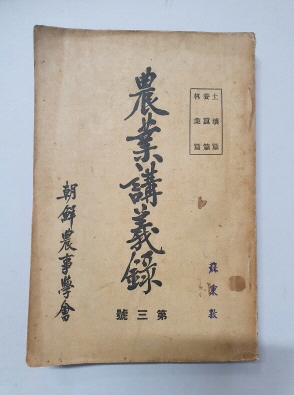 土壤篇
養蠶篇
林業篇
農業講義錄
第三號
朝鮮農事學會